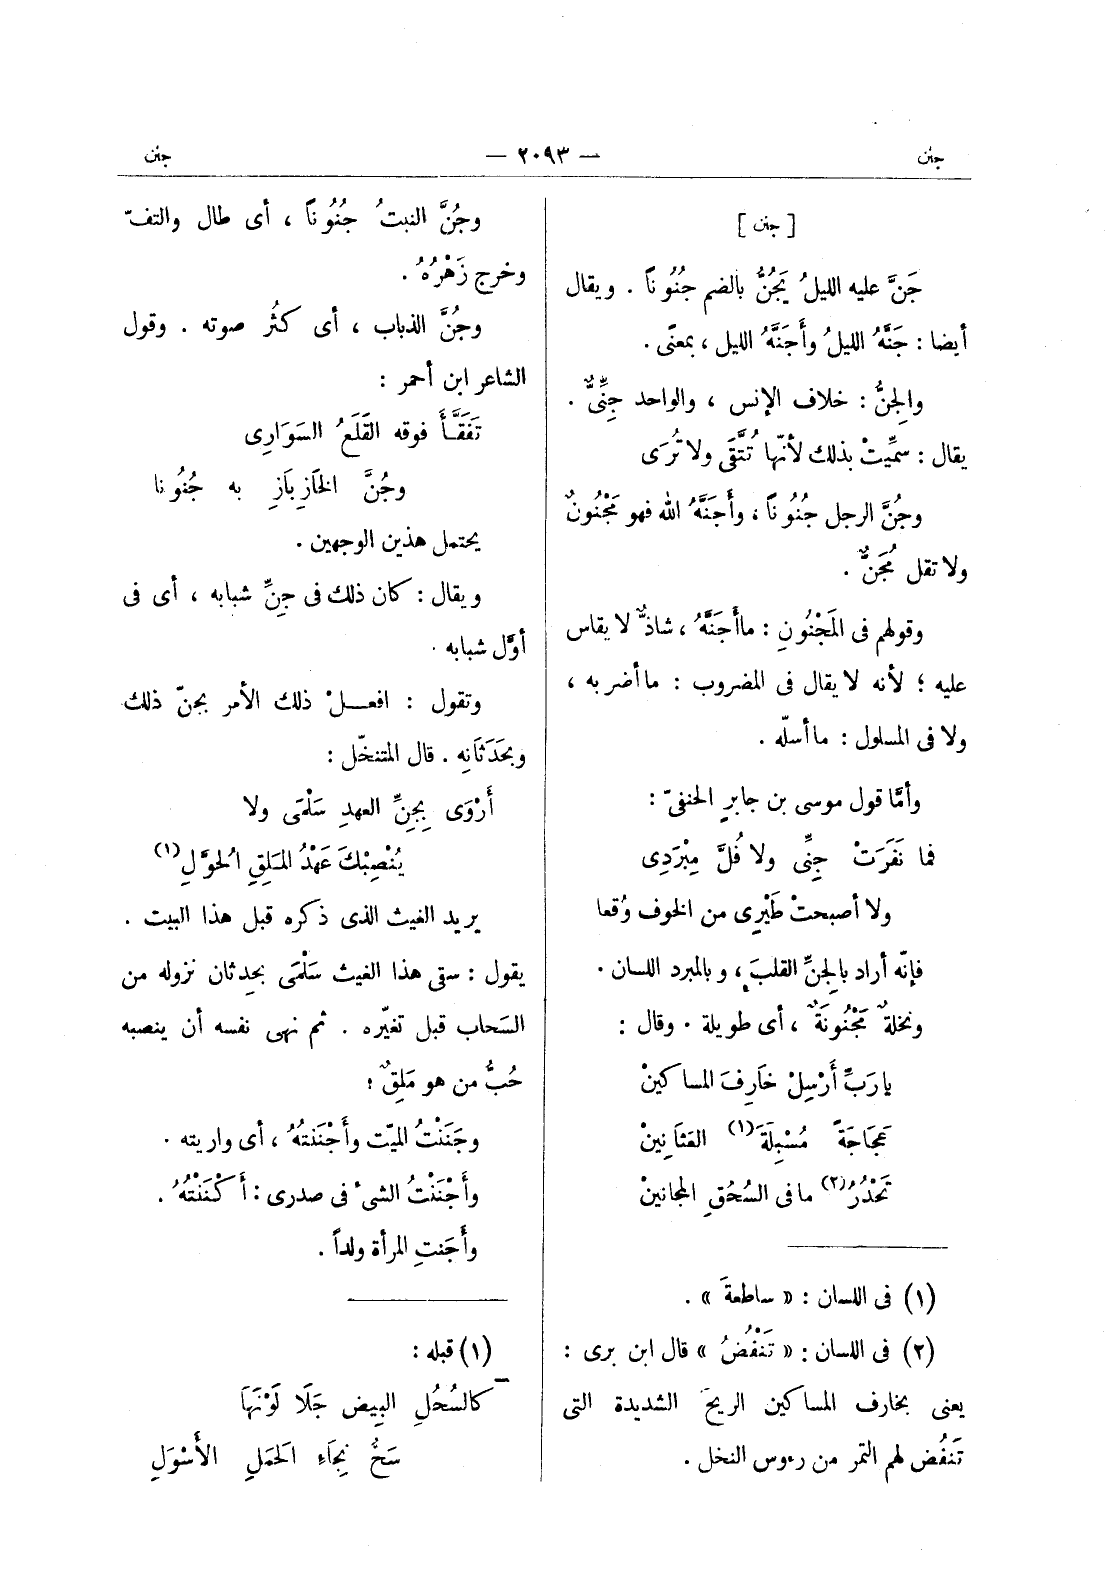 جنن
— ٢٠٩٣ —
جنن
[ جنن ]
جَنَّ عليه الليلُ يَجُنُّ بالضم جُنُوناً . ويقال
أيضا : جَنَّهُ الليلُ وأَجَنَّهُ الليل ، بمعنًى .
والجِنُّ : خلاف الإنس ، والواحد جِنِّىٌّ .
يقال : سمِّيتْ بذلك لأنّها تُتَّقَى ولا تُرَى
وجُنَّ الرجل جُنُوناً ، وأَجَنَّهُ الله فهو مَجْنُونٌ
ولا تقل مُجَنٌّ .
وقولهم فى المَجْنُونِ : ماأَجَنَّهُ ، شاذٌّ لا يقاس
عليه ؛ لأنه لا يقال فى المضروب : ما أضربه ،
ولا فى المسلول : ما أسلّه .
وأمَّا قول موسى بن جابرٍ الحنفىّ :
فما نَفَرَتْ جِنِّى ولا فُلَّ مِبْرَدِى
ولا أصبحتْ طَيْرِى من الخوف وُقعا
فإنّه أراد بالجِنِّ القلبَ ، وبالمبرد اللسان .
ونخلةٌ مَجْنُونَةٌ ، أى طويلة . وقال :
يارَبِّ أَرْسِلْ خَارِفَ المساكينْ
عَجَاجَةً مُسْبِلَةَ (١) العَثَانِينْ
تَحْدُرُ (٢) ما فى السُحُقِ المجانينْ
(١) فى اللسان : « ساطعةَ » .
(٢) فى اللسان : « تَنْفُضُ » قال ابن برى :
يعنى بخارف المساكين الريحَ الشديدة التى
تَنفُض لهم التمر من رءوس النخل .
وجُنَّ النبتُ جُنُوناً ، أى طال والتفّ
وخرج زَهْرُهُ .
وجُنَّ الذباب ، أى كثُر صوته . وقول
الشاعر ابن أحمر :
تَفَقَّأَ فوقه القَلَعُ السَوَارِى
وجُنَّ الخَازِبَازِ به جُنُونا
يحتمل هذين الوجهين .
ويقال : كان ذلك فى جِنِّ شبابه ، أى فى
أوَّل شبابه .
وتقول : افعلْ ذلك الأمر بجنّ ذلك
وبحَدَثَانِه . قال المتنخّل :
أَرْوَى بِجِنِّ العهدِ سَلْمَى ولا
يُنْصِبْكَ عَهْدُ المَلِقِ الحُوَّلِ (١)
يريد الغيث الذى ذكره قبل هذا البيت .
يقول : سقى هذا الغيث سَلْمَى بحِدثان نزوله من
السَحاب قبل تغيّره . ثم نهى نفسه أن ينصبه
حُبُّ من هو مَلِقٌ ؛
وجَنَنْتُ الميّت وأَجْنَنتُهُ ، أى واريته .
وأَجْنَنْتُ الشىءَ فى صدرى : أَكْنَنْتُهُ .
وأَجَنتِ المرأة ولداً .
(١) قبله :
كالسُحُلِ البِيضِ جَلَا لَوْنَهَا
سَحُّ نِجَاءِ الحَمَلِ الأَسْوَلِ